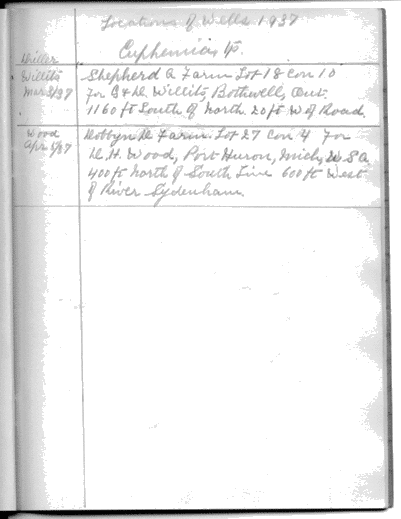 Locations of Wells 1937
Euphemia Tp.
Driller
Willits
Mar 3/37
Shepherd A Farm Lot 18 Con 10
For G & D. Willits, Bothwell, Ont.
1160 ft South of North 20 ft W of Road.
Wood
Apr 5/37
Robbyn D Farm. Lot 27 Con 4 For
D. H. Wood, Port Huron, Mich, U.S.A.
400 ft North of South Line 600 ft West
of River Sydenham.